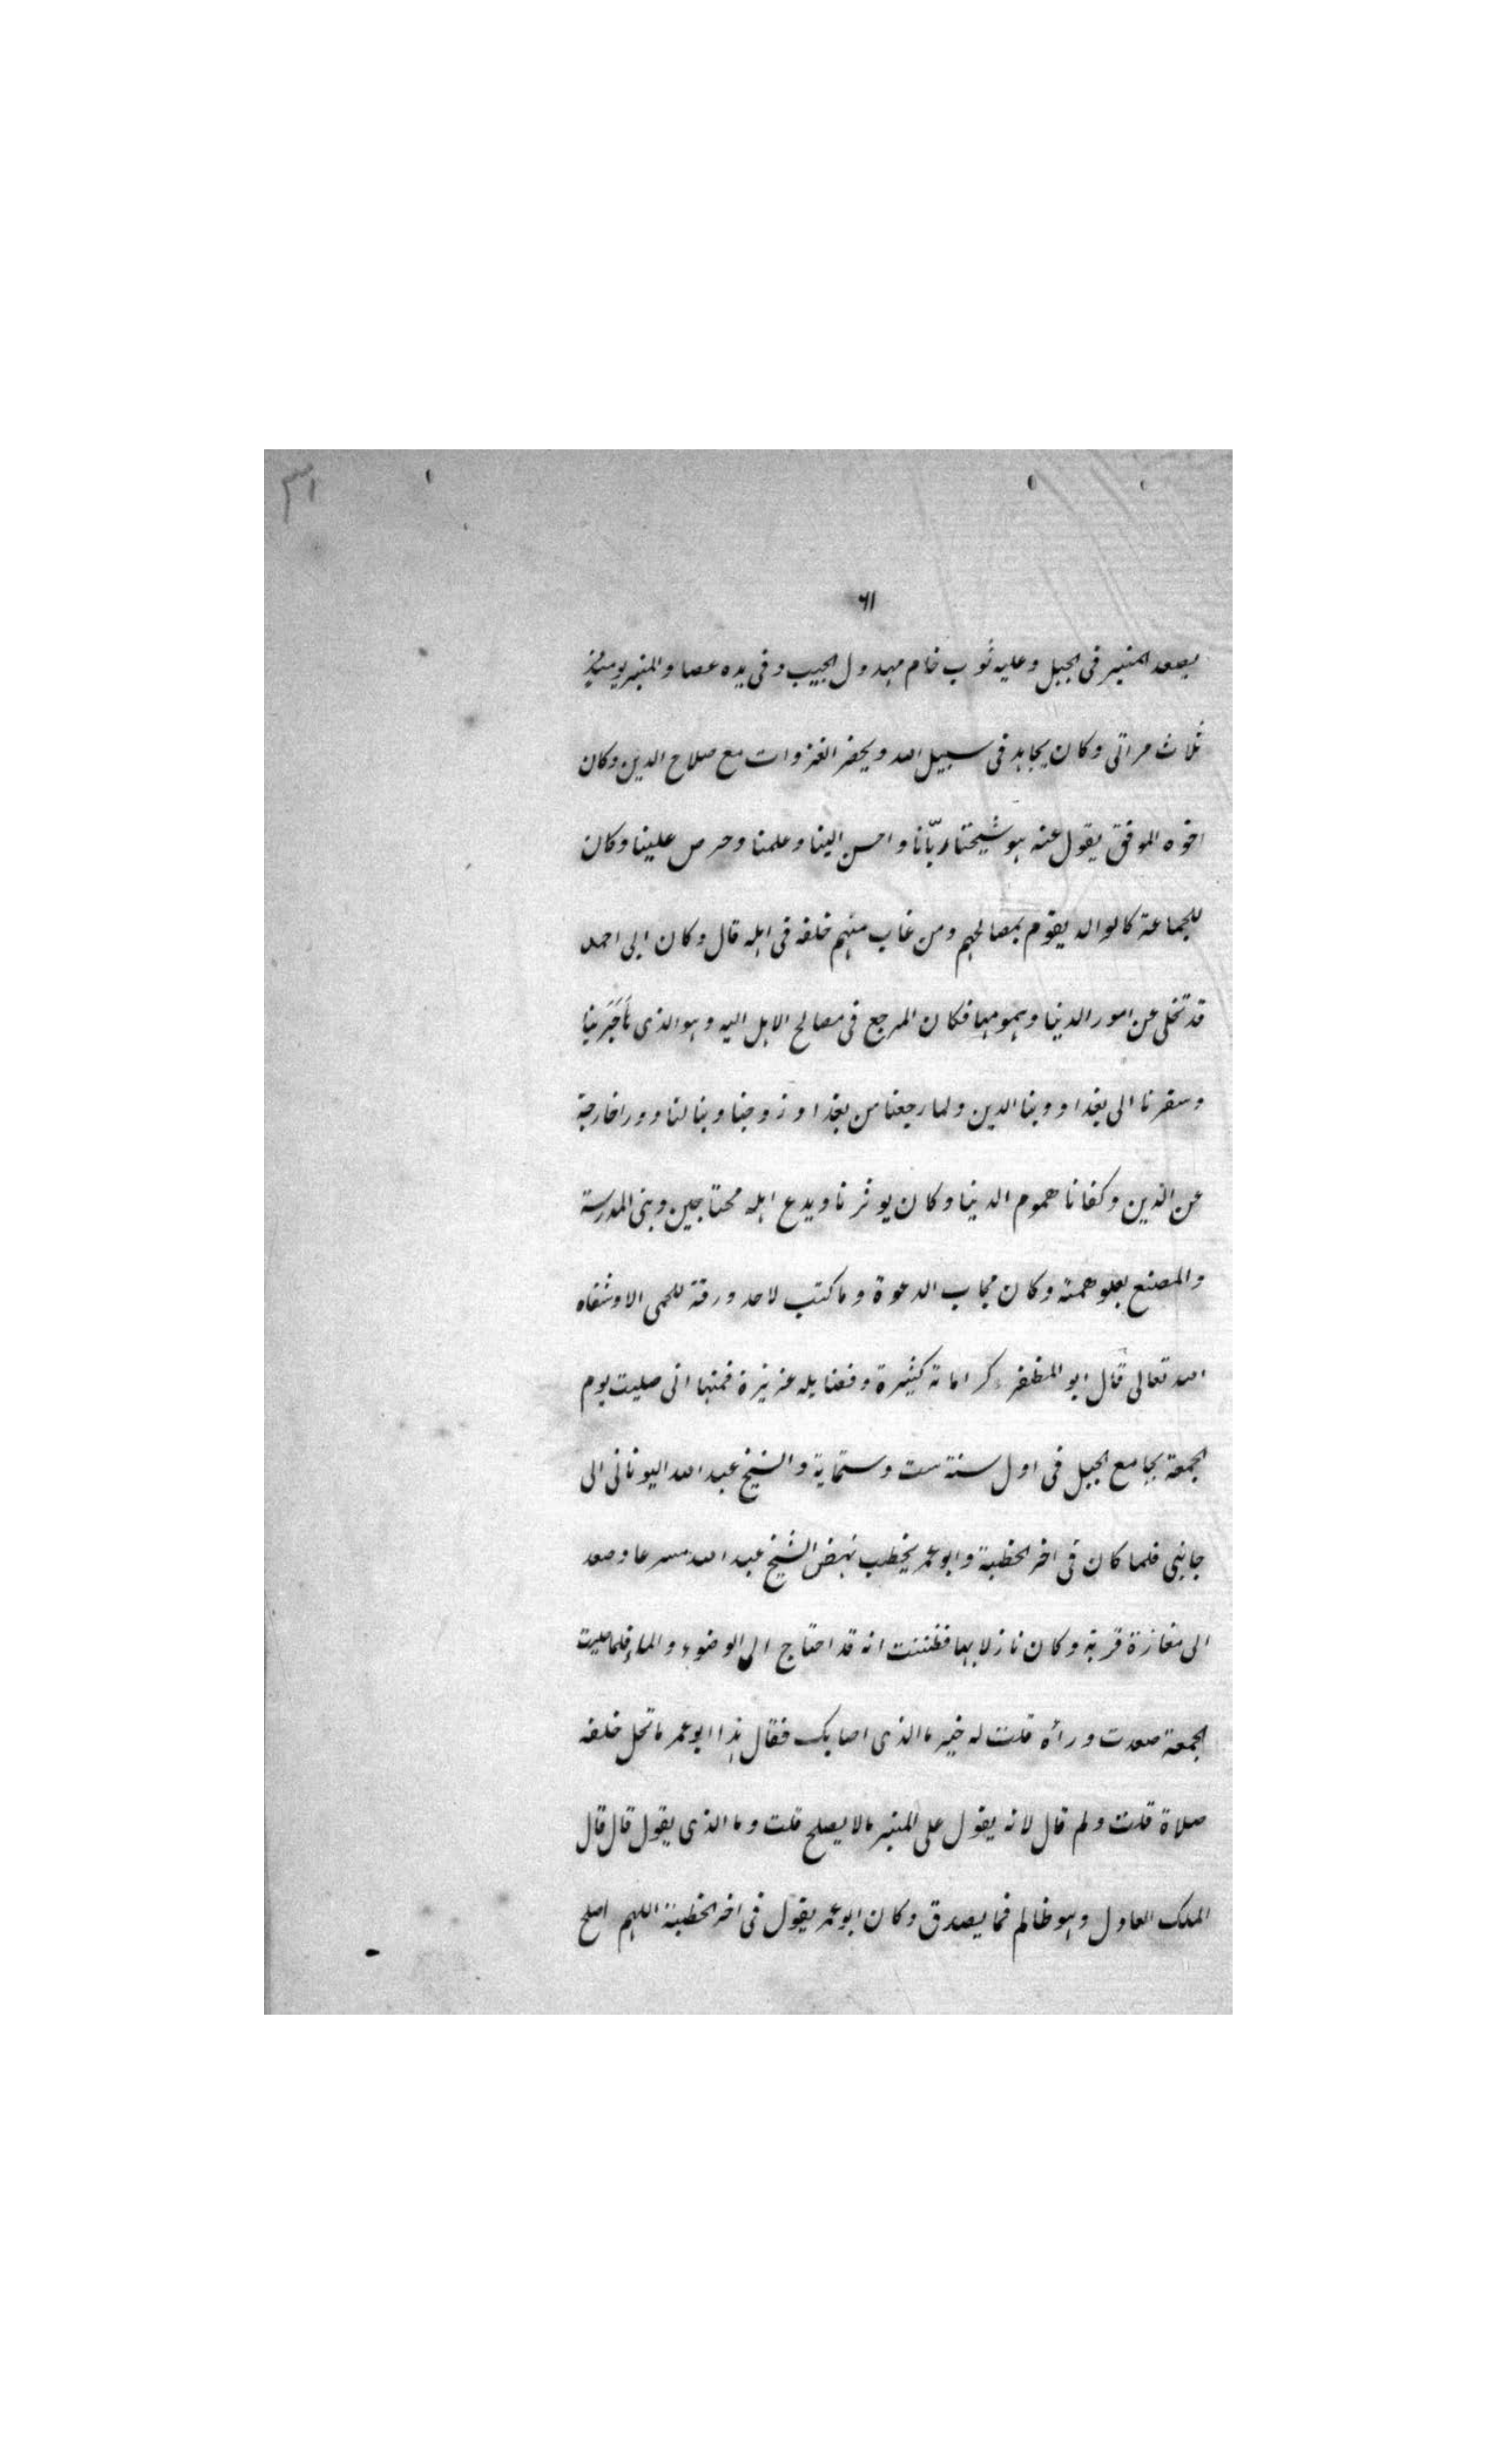 ٣١
٦١
يصعد المنبر فى الجبل وعليه ثوب خام مهدول الجيب وفى يده عصا والمنبر يوميذ
ثلاث مراتى وكان يجاهد فى سبيل الله ويحضر الغزوات مع صلاح الدين وكان
اخوه الموفق يقول عنه هو شيخنا ربّانا واحسن الينا وعلمنا وحرص علينا وكان
للجماعة كالوالد يقوم بمصالحهم ومن غاب منهم خلفه فى اهله قال وكان ابى احمد
قد تخلى عن امور الدنيا وهمومها فكان المرجع فى مصالح الاهل اليه وهو الذى
وسفرنا الى بغداد وبنا الدين ولما رجعنا من بغداد زوجنا وبنا لنا دورا خارجة
عن الدين وكفانا هموم الدنيا وكان يوثرنا ويدع اهله محتاجين وبنى المدرسة
والمصنع بعلو همته وكان مجاب الدعوة وما كتب لاحد ورقة للحمى الا وشفاه
الله تعالى قال ابو المظفر كراماته كثيرة وفضايله عزيزة فمنها انى صليت يوم
الجمعة بجامع الجبل فى اول سنة ست وستماية والشيخ عبد الله اليونانى الى
جانبى فلما كان فى اخر الخطبة وابو عمر يخطب نهض الشيخ عبد الله مسرعا وصعد
الى مغارة قربة وكان نازلا بها فظننت انه قد احتاج الى الوضوء والماء فلما صليت
الجمعة صعدت وراه قلت له خير ما الذى اصابك فقال هذا ابو عمر ما تحل خلفه
صلاة قلت ولم قال لانه يقول على المنبر ما لا يصلح قلت وما الذى يقول قال قال
الملك العادل وهو ظالم فما يصدق وكان ابو عمر يقول فى اخر الخطبة اللهم اصلح